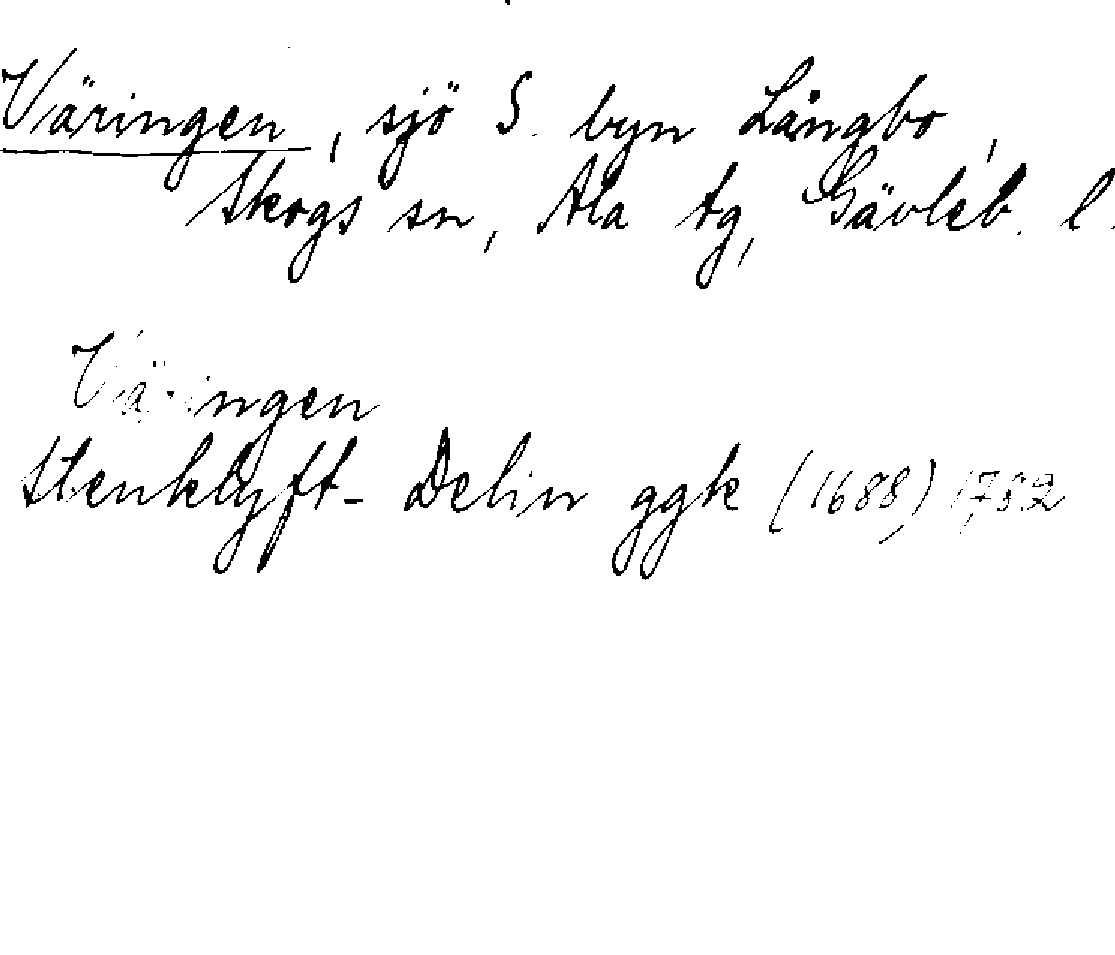 Väringen, sjö S. byn Långbo,
Skogs sn, Ala tg, Gävleb. l.
Väringen
Stenklyft- Delin ggk (1688) 1752